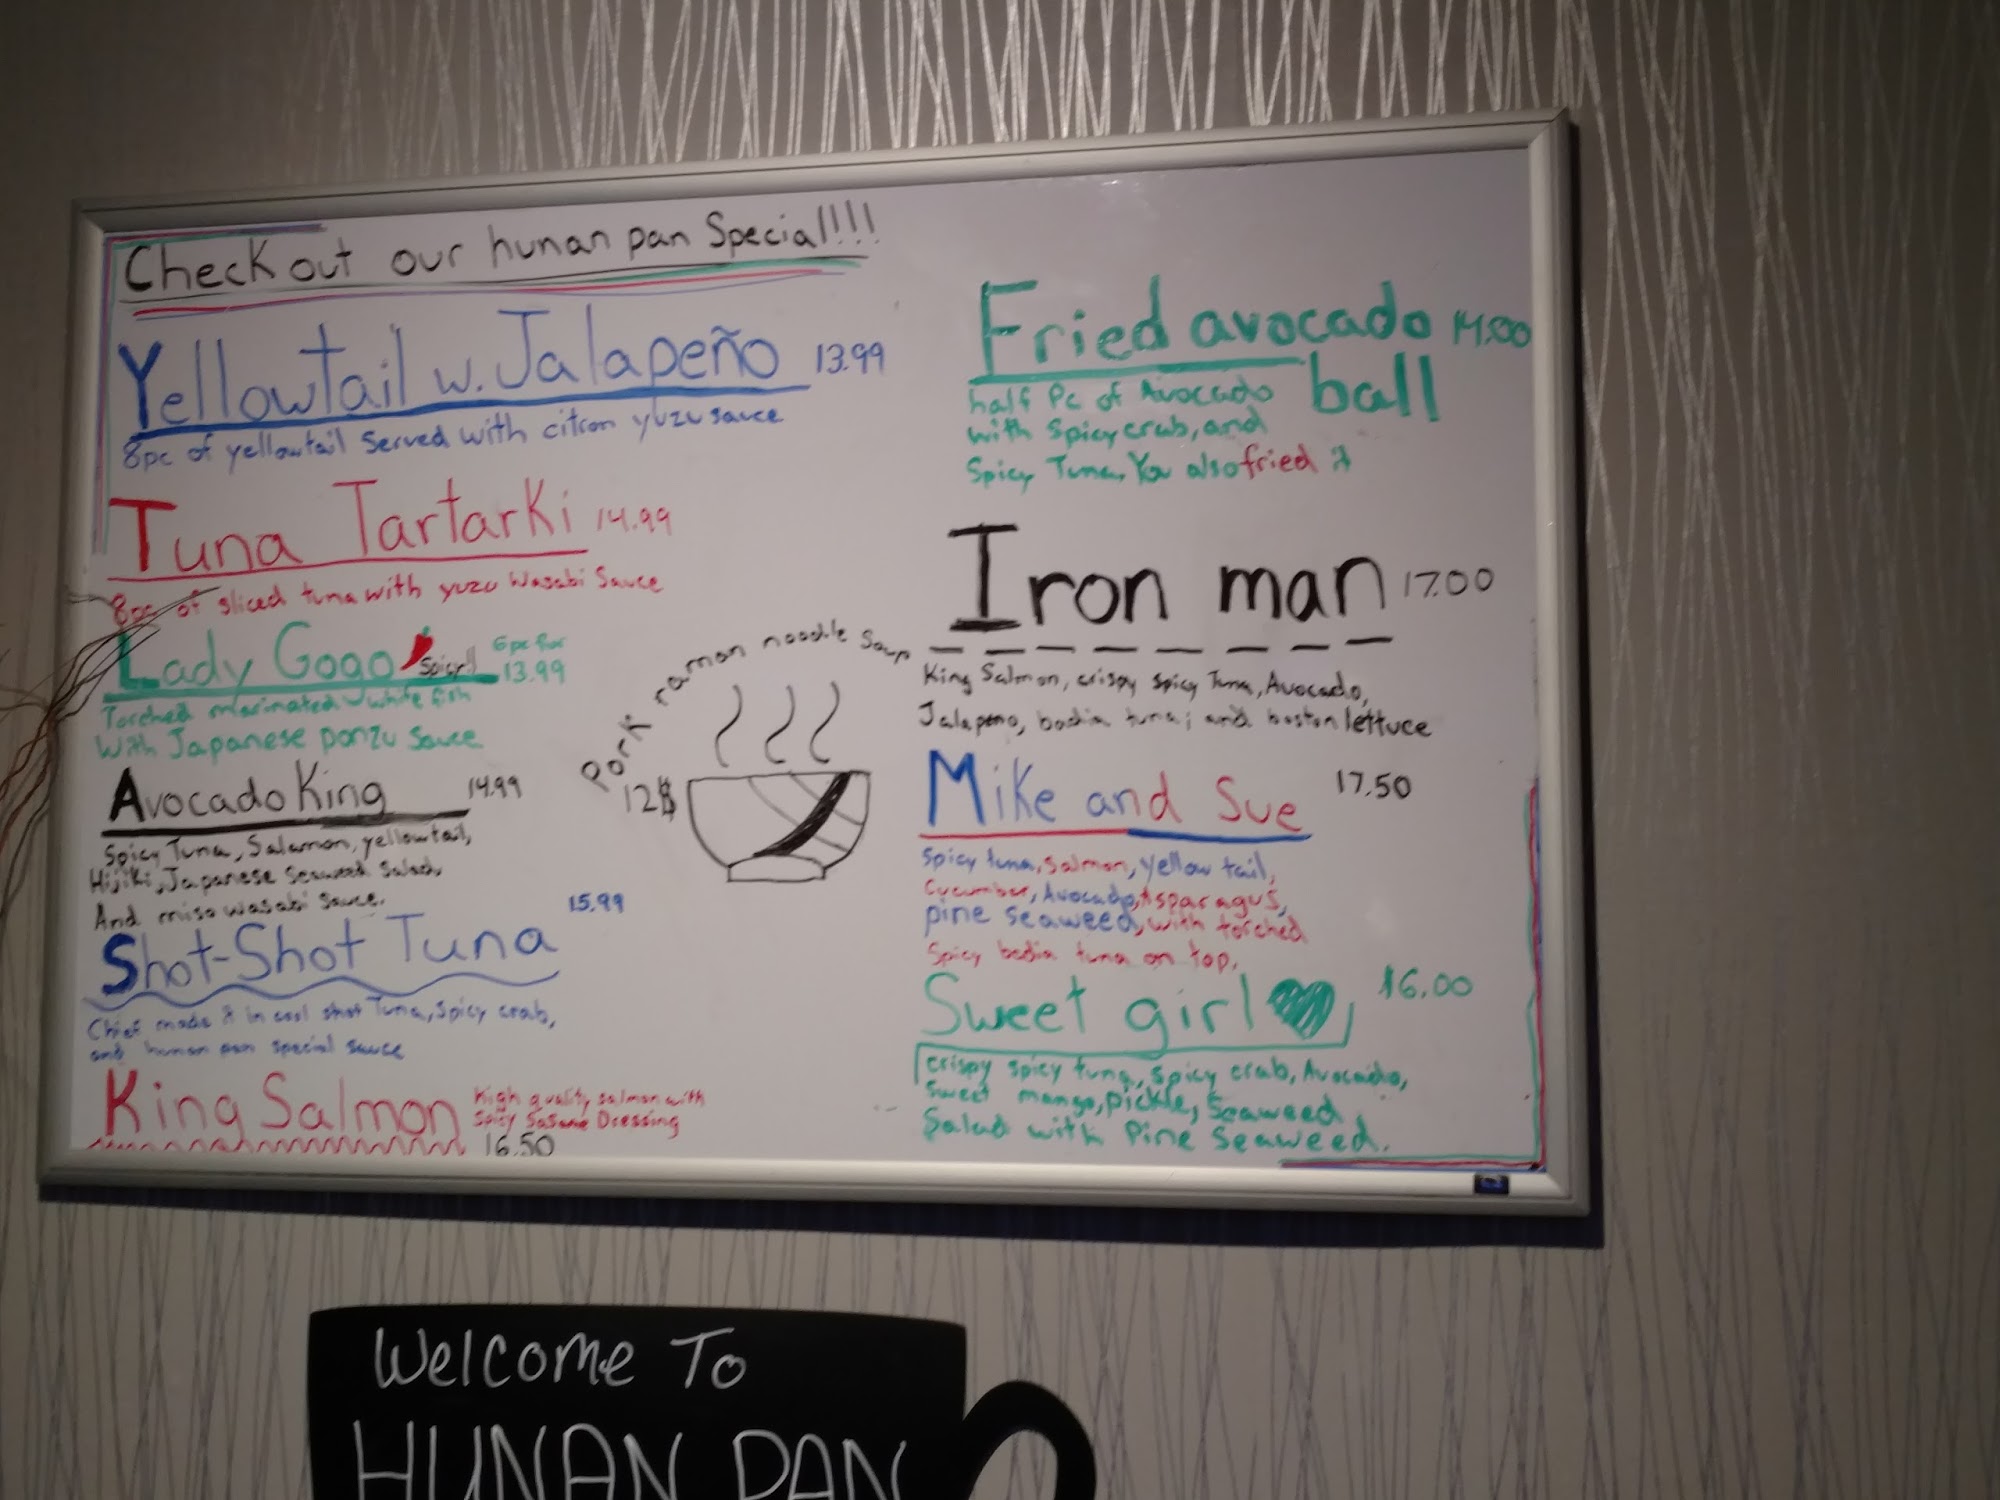 Check out our hunan pan Special!!!
Yellowtail w. Jalapeño 13.99
8pc of yellowtail Served with citron yuzu sauce
Tuna Tartarki 14.99
8pc of sliced tuna with yuzu Wasabi Sauce
Lady Gogo Spicy!! 6pc for 13.99
Torched marinated white fish
With Japanese ponzu Sauce
Avocado King 14.99
Spicy Tuna, Salamon, yellowtail,
Hijiki, Japanese Seaweed Salad,
And miso wasabi Sauce.
Shot-Shot Tuna 15.99
Chief made it in cool shot Tuna, Spicy crab,
and hunan pan special sauce
King Salmon
High quality salmon with
Spicy Sasame Dressing
16.50
Pork raman noodle Soup
12$
Fried avocado 14.00
ball
half Pc of Avocado
with Spicy crab, and
Spicy Tuna, You also fried it
Iron man 17.00
King Salmon, crispy spicy Tuna, Avocado,
Jalapeno, badia tuna; and boston lettuce
Mike and Sue 17.50
Spicy tuna, Salmon, Yellow tail,
Cucumber, Avocado, Asparagus,
pine seaweed, with torched
Spicy badia tuna on top.
Sweet girl 16.00
crispy spicy tuna, spicy crab, Avocado,
Sweet mango, pickle, Seaweed
Salad with Pine Seaweed.
Welcome To
HUNAN PAN